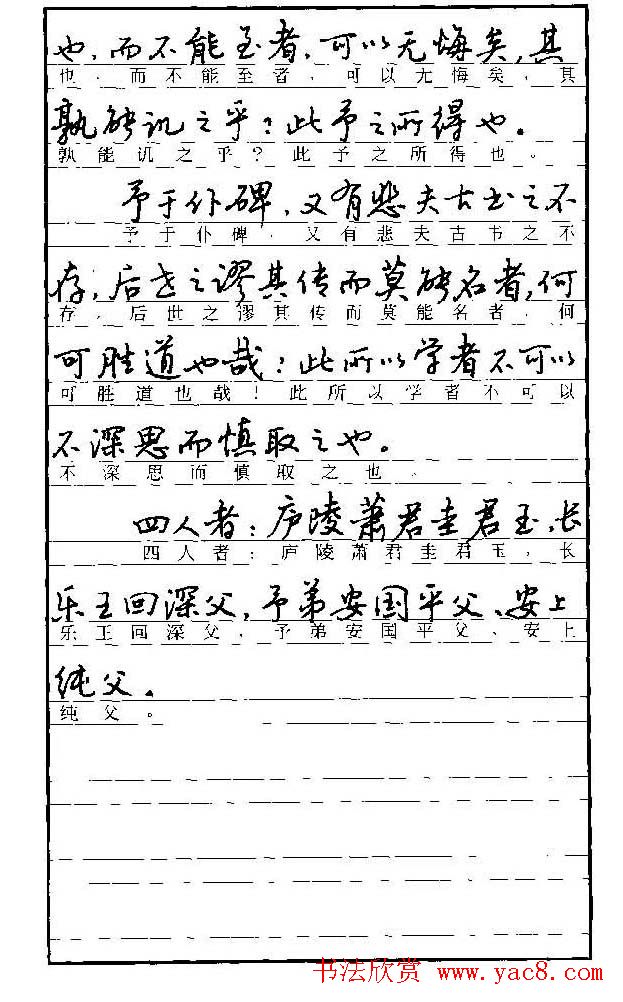 也，而不能至者，可以无悔矣，其
也，而不能至者，可以无悔矣，其
孰能讥之乎？此予之所得也。
孰能讥之乎？此予之所得也。
予于仆碑，又有悲夫古书之不
予于仆碑，又有悲夫古书之不
存，后世之谬其传而莫能名者，何
存，后世之谬其传而莫能名者，何
可胜道也哉！此所以学者不可以
可胜道也哉！此所以学者不可以
不深思而慎取之也。
不深思而慎取之也
四人者：庐陵萧君圭君玉，长
四人者：庐陵萧君圭君玉，长
乐王回深父，予弟安国平父、安上
乐王回深父，予弟安国平父、安上
纯父。
纯父。
书法欣赏 www.yac8.com